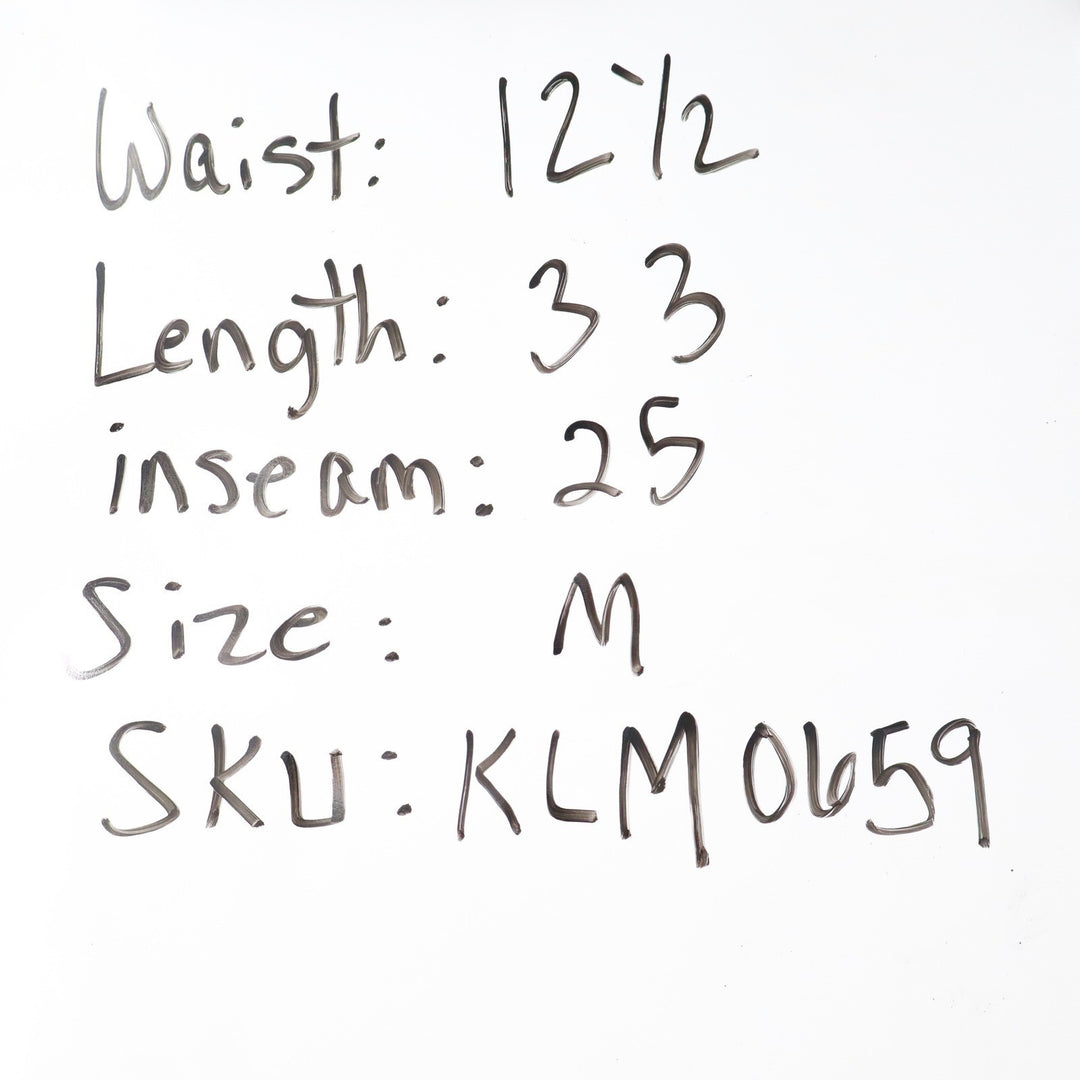 Waist: 12-1/2
Length: 33
inseam: 25
Size: M
SKU: KLM0659